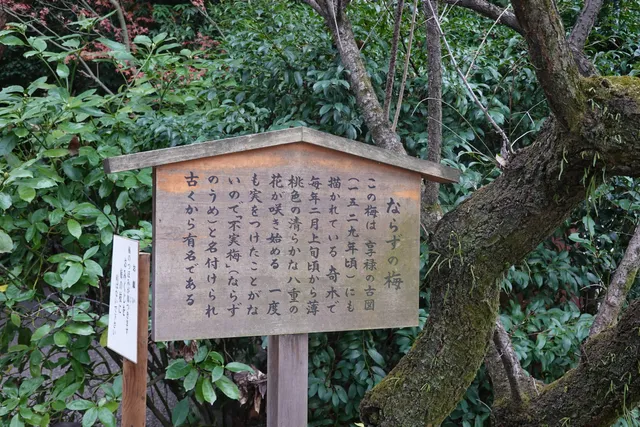 ならずの梅
この梅は 享禄の古図
（一五二九年頃）にも
描かれている 奇木で
毎年二月上旬頃から薄
桃色の清らかな八重の
花が咲き始める 一度
も実をつけたことがな
いので「不実梅（ならず
のうめ）」と名付けられ
古くから有名である
お願い